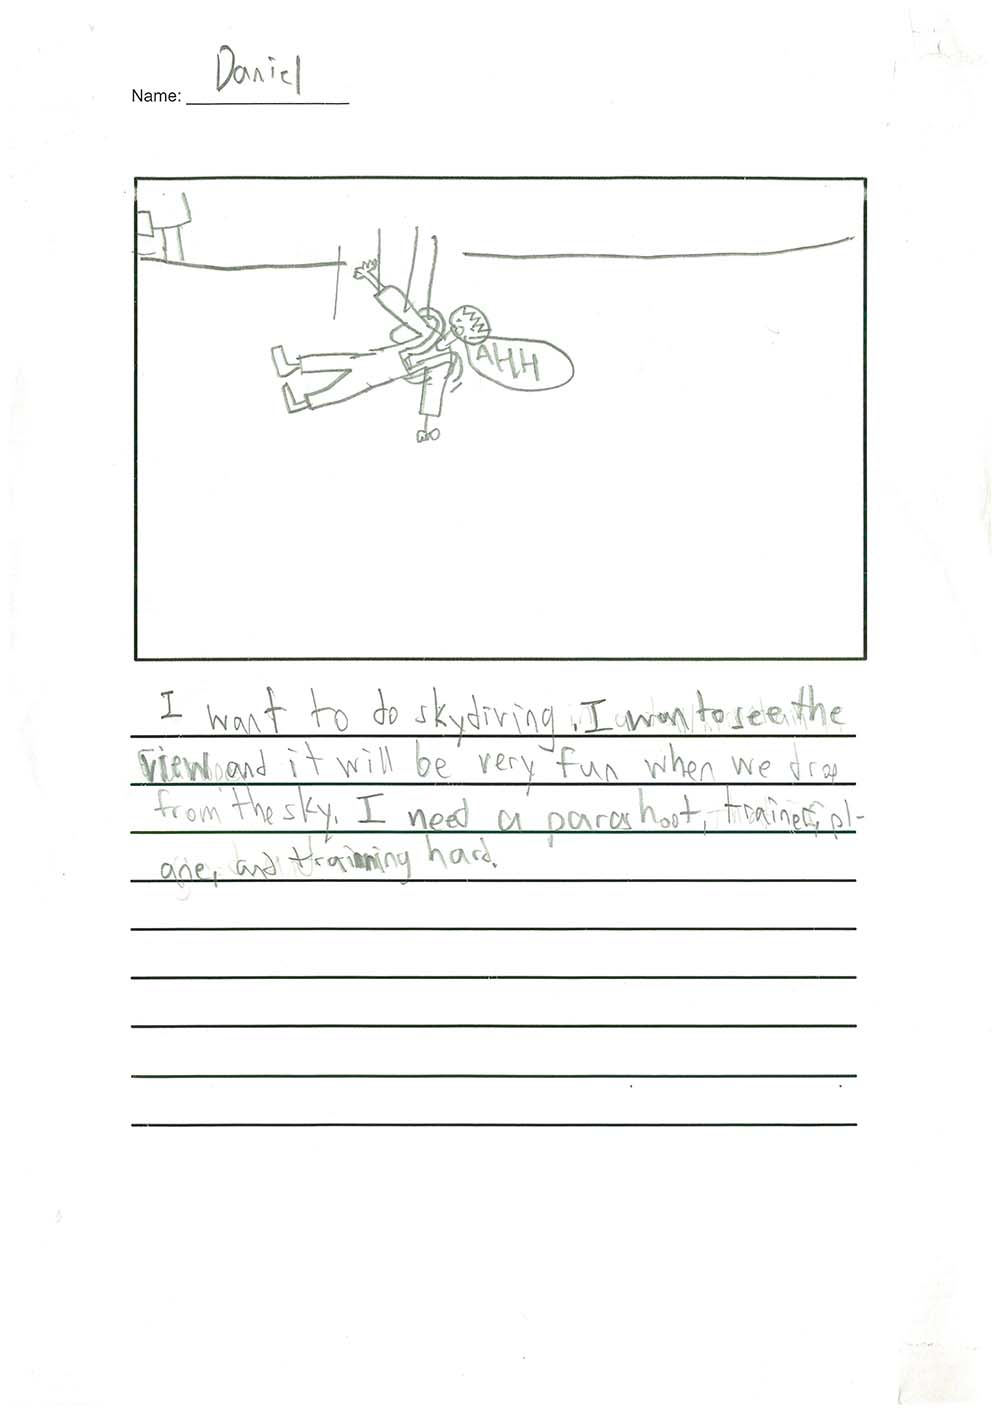 Daniel
Name:
AHH
I want to do skydiving. I wan to see the
view and it will be very fun when we drop
from the sky. I need a parashoot, trainer, pl-
ane, and trainning hard.